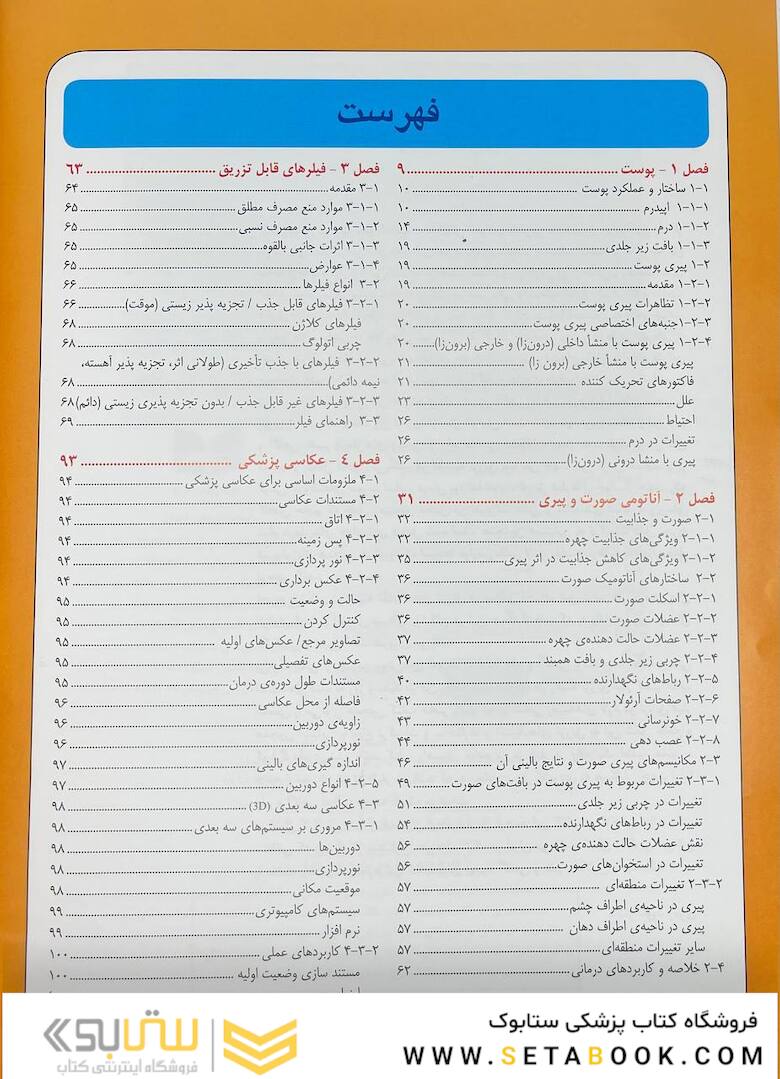 فهرست
فصل ۱ - پوست ........ ۹
۱-۱ ساختار و عملکرد پوست ........ ۱۰
۱-۱-۱ اپیدرم ........ ۱۰
۱-۱-۲ درم ........ ۱۴
۱-۱-۳ بافت زیر جلدی ........ ۱۹
۱-۲ پیری پوست ........ ۱۹
۱-۲-۱ مقدمه ........ ۱۹
۱-۲-۲ تظاهرات پیری پوست ........ ۲۰
۱-۲-۳ جنبه‌های اختصاصی پیری پوست ........ ۲۰
۱-۲-۴ پیری پوست با منشأ داخلی (درون‌زا) و خارجی (برون‌زا) ........ ۲۰
پیری پوست با منشأ خارجی (برون زا) ........ ۲۱
فاکتورهای تحریک کننده ........ ۲۱
علل ........ ۲۳
احتیاط ........ ۲۶
تغییرات در درم ........ ۲۶
پیری با منشا درونی (درون‌زا) ........ ۲۶
فصل ۲ - آناتومی صورت و پیری ........ ۳۱
۲-۱ صورت و جذابیت ........ ۳۲
۲-۱-۱ ویژگی‌های جذابیت چهره ........ ۳۲
۲-۱-۲ ویژگی‌های کاهش جذابیت در اثر پیری ........ ۳۵
۲-۲ ساختارهای آناتومیک صورت ........ ۳۶
۲-۲-۱ اسکلت صورت ........ ۳۶
۲-۲-۲ عضلات صورت ........ ۳۶
۲-۲-۳ عضلات حالت دهنده‌ی چهره ........ ۳۷
۲-۲-۴ چربی زیر جلدی و بافت همبند ........ ۳۷
۲-۲-۵ رباط‌های نگهدارنده ........ ۴۰
۲-۲-۶ صفحات آرئولار ........ ۴۲
۲-۲-۷ خونرسانی ........ ۴۳
۲-۲-۸ عصب دهی ........ ۴۴
۲-۳ مکانیسم‌های پیری صورت و نتایج بالینی آن ........ ۴۶
۲-۳-۱ تغییرات مربوط به پیری پوست در بافت‌های صورت ........ ۴۹
تغییرات در چربی زیر جلدی ........ ۵۱
تغییرات در رباط‌های نگهدارنده ........ ۵۴
نقش عضلات حالت دهنده‌ی چهره ........ ۵۶
تغییرات در استخوان‌های صورت ........ ۵۶
۲-۳-۲ تغییرات منطقه‌ای ........ ۵۷
پیری در ناحیه‌ی اطراف چشم ........ ۵۷
پیری در ناحیه‌ی اطراف دهان ........ ۵۷
سایر تغییرات منطقه‌ای ........ ۵۷
۲-۴ خلاصه و کاربردهای درمانی ........ ۶۲
فصل ۳ - فیلرهای قابل تزریق ........ ۶۳
۳-۱ مقدمه ........ ۶۴
۳-۱-۱ موارد منع مصرف مطلق ........ ۶۵
۳-۱-۲ موارد منع مصرف نسبی ........ ۶۵
۳-۱-۳ اثرات جانبی بالقوه ........ ۶۵
۳-۱-۴ عوارض ........ ۶۵
۳-۲ انواع فیلرها ........ ۶۶
۳-۲-۱ فیلرهای قابل جذب / تجزیه پذیر زیستی (موقت) ........ ۶۶
فیلرهای کلاژن ........ ۶۸
چربی اتولوگ ........ ۶۸
۳-۲-۲ فیلرهای با جذب تأخیری (طولانی اثر، تجزیه پذیر آهسته،
نیمه دائمی) ........ ۶۸
۳-۲-۳ فیلرهای غیر قابل جذب / بدون تجزیه پذیری زیستی (دائم) ۶۸
۳-۳ راهنمای فیلر ........ ۶۹
فصل ٤ - عکاسی پزشکی ........ ۹۳
۴-۱ ملزومات اساسی برای عکاسی پزشکی ........ ۹۴
۴-۲ مستندات عکاسی ........ ۹۴
۴-۲-۱ اتاق ........ ۹۴
۴-۲-۲ پس زمینه ........ ۹۴
۴-۲-۳ نور پردازی ........ ۹۴
۴-۲-۴ عکس برداری ........ ۹۴
حالت و وضعیت ........ ۹۵
کنترل کردن ........ ۹۵
تصاویر مرجع/ عکس‌های اولیه ........ ۹۵
عکس‌های تفصیلی ........ ۹۵
مستندات طول دوره‌ی درمان ........ ۹۵
فاصله از محل عکاسی ........ ۹۶
زاویه‌ی دوربین ........ ۹۶
نورپردازی ........ ۹۶
اندازه گیری‌های بالینی ........ ۹۷
۴-۲-۵ انواع دوربین ........ ۹۷
۴-۳ عکاسی سه بعدی (3D) ........ ۹۸
۴-۳-۱ مروری بر سیستم‌های سه بعدی ........ ۹۸
دوربین‌ها ........ ۹۸
نورپردازی ........ ۹۸
موقعیت مکانی ........ ۹۸
سیستم‌های کامپیوتری ........ ۹۹
نرم افزار ........ ۹۹
۴-۳-۲ کاربردهای عملی ........ ۱۰۰
مستند سازی وضعیت اولیه ........ ۱۰۰
فروشگاه کتاب پزشکی ستابوک
WWW.SETABOOK.COM
ستابوک
فروشگاه اینترنتی کتاب